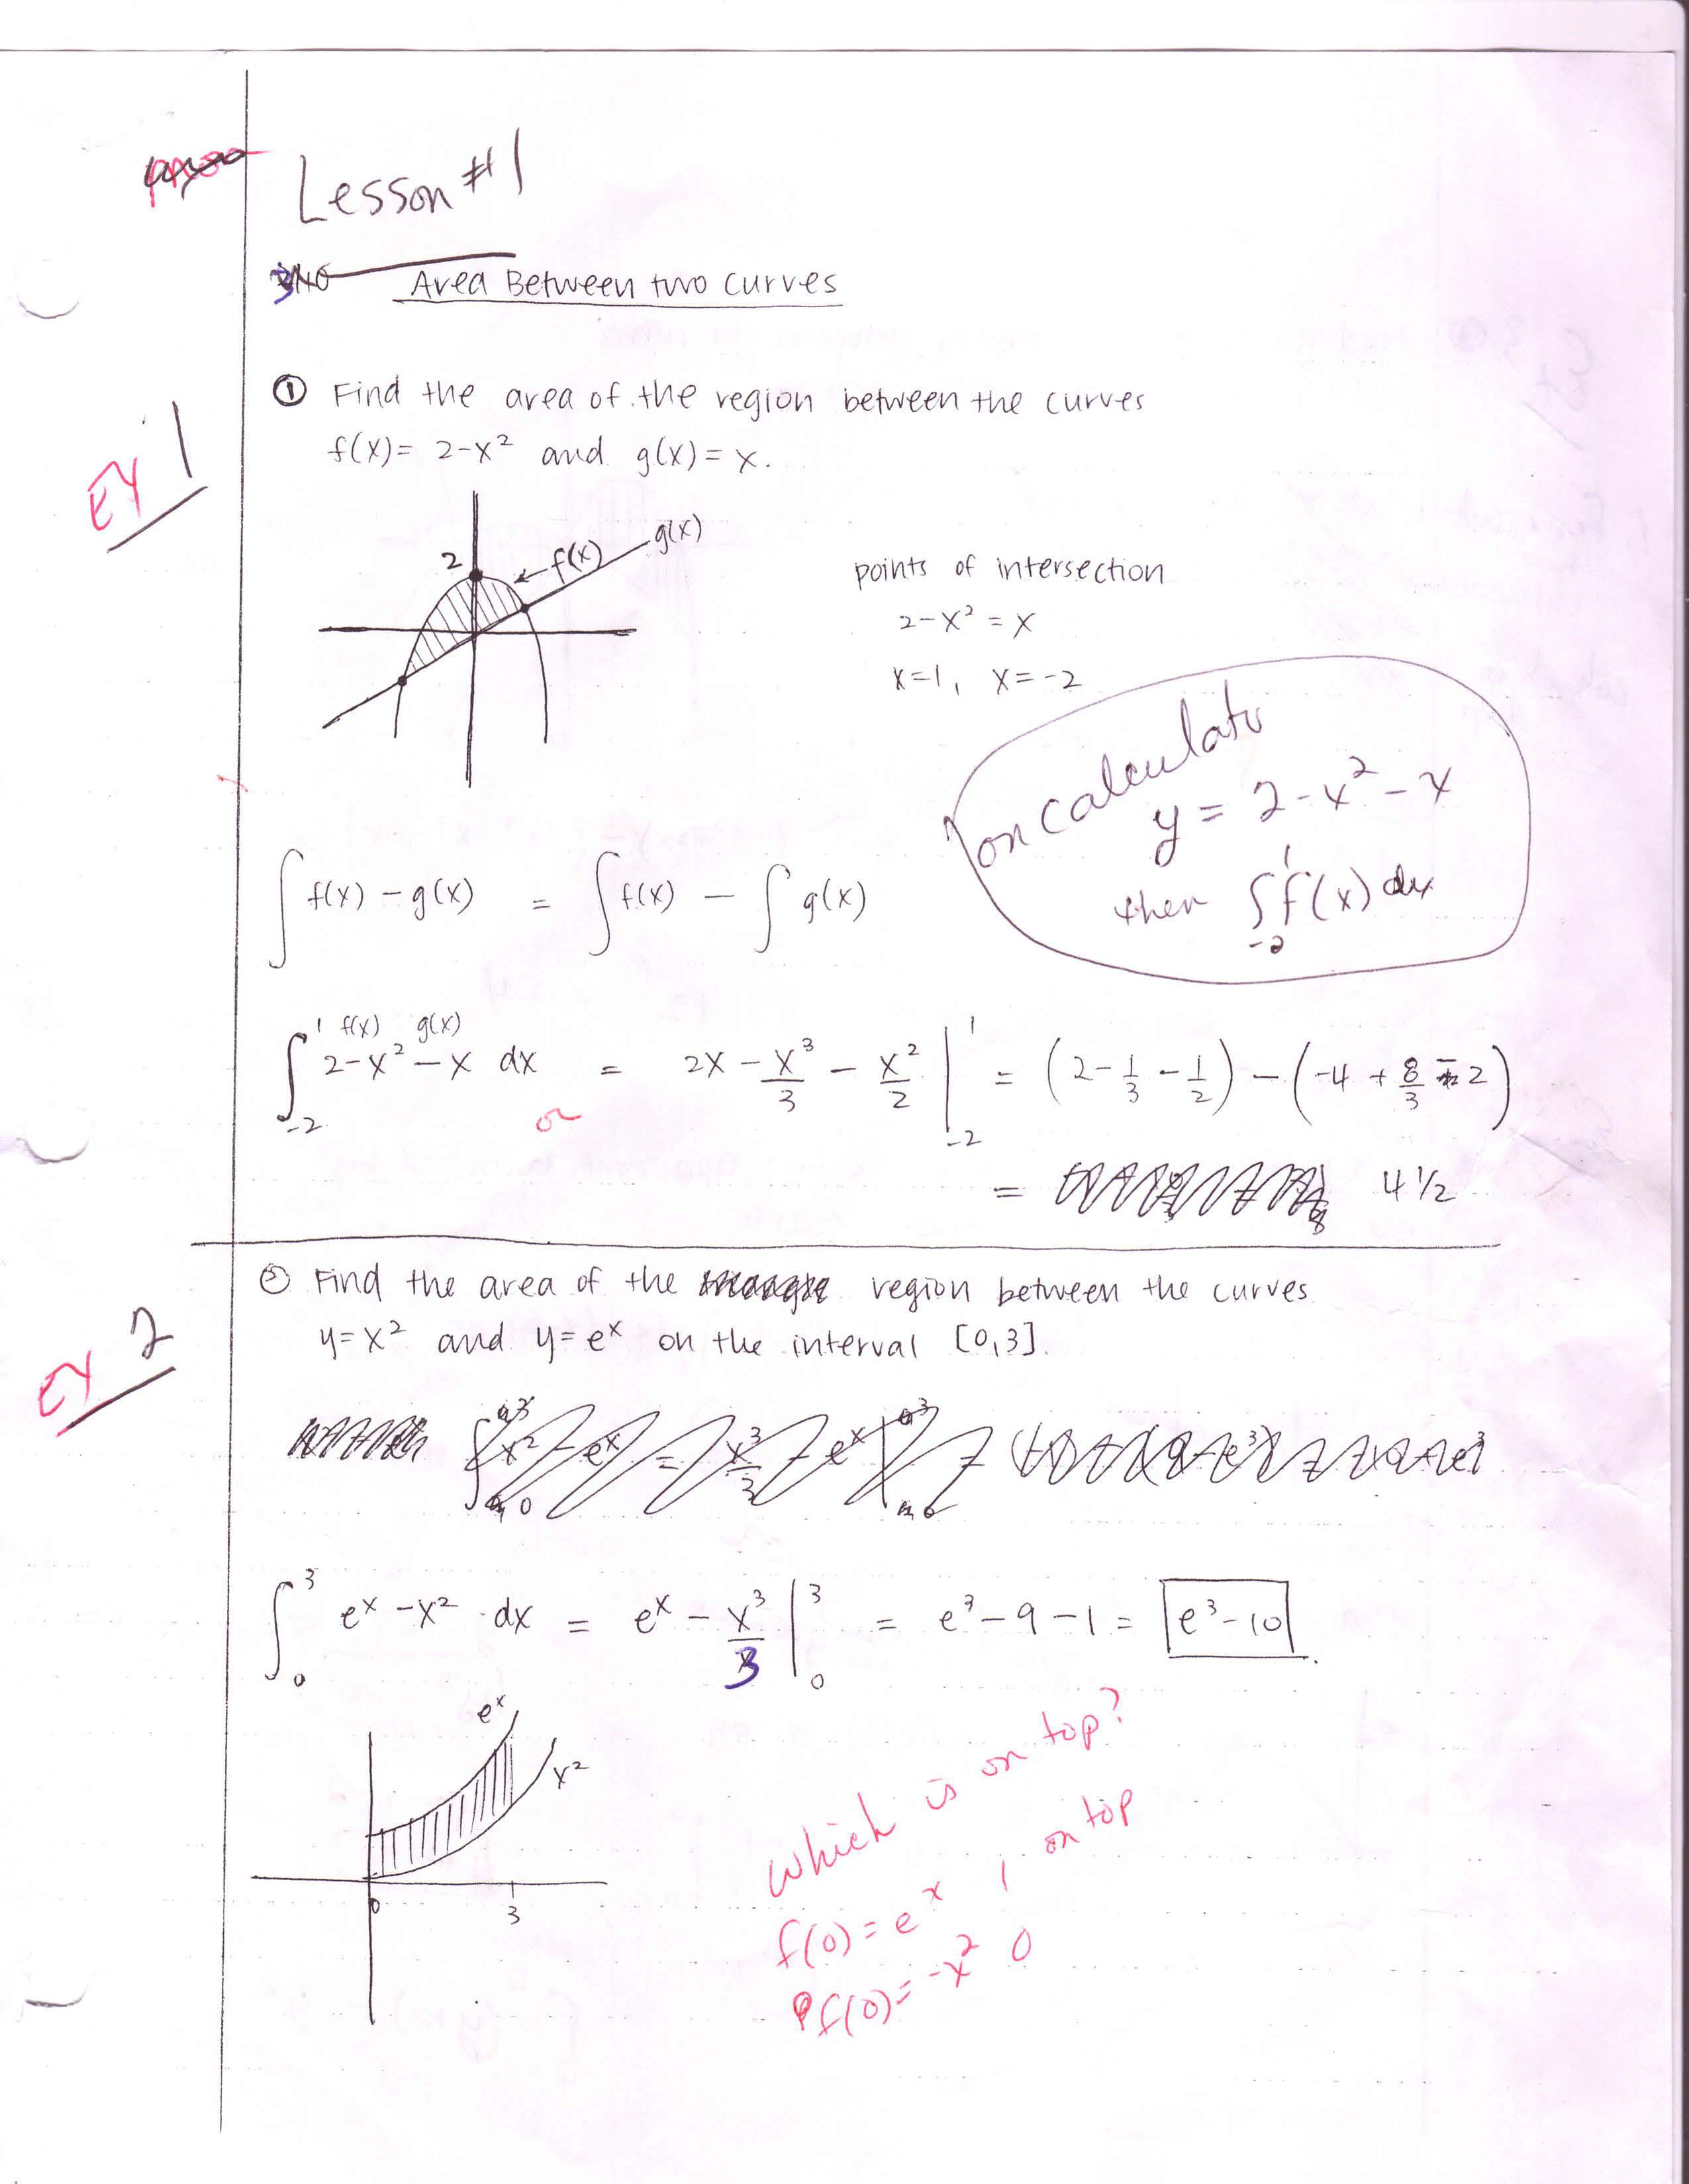 Lesson #1
Area Between two curves
EX 1
① Find the area of the region between the curves
f(x) = 2-x² and g(x) = x.
2
f(x)
g(x)
points of intersection
2-x² = x
x=1, x=-2
on calculator
y = 2-x²-x
then ∫₋₂¹ f(x) dx
∫ f(x) - g(x) = ∫ f(x) - ∫ g(x)
f(x) g(x)
∫₋₂¹ 2-x²-x dx = 2x - x³/3 - x²/2 |₋₂¹ = (2 - 1/3 - 1/2) - (-4 + 8/3 - 2)
or
= 4 1/2
EX 2
② Find the area of the region between the curves
y = x² and y = eˣ on the interval [0,3].
∫₀³ eˣ - x² dx = eˣ - x³/3 |₀³ = e³ - 9 - 1 = e³ - 10
eˣ
x²
0
3
which is on top?
f(0) = eˣ 1 on top
f(0) = -x² 0